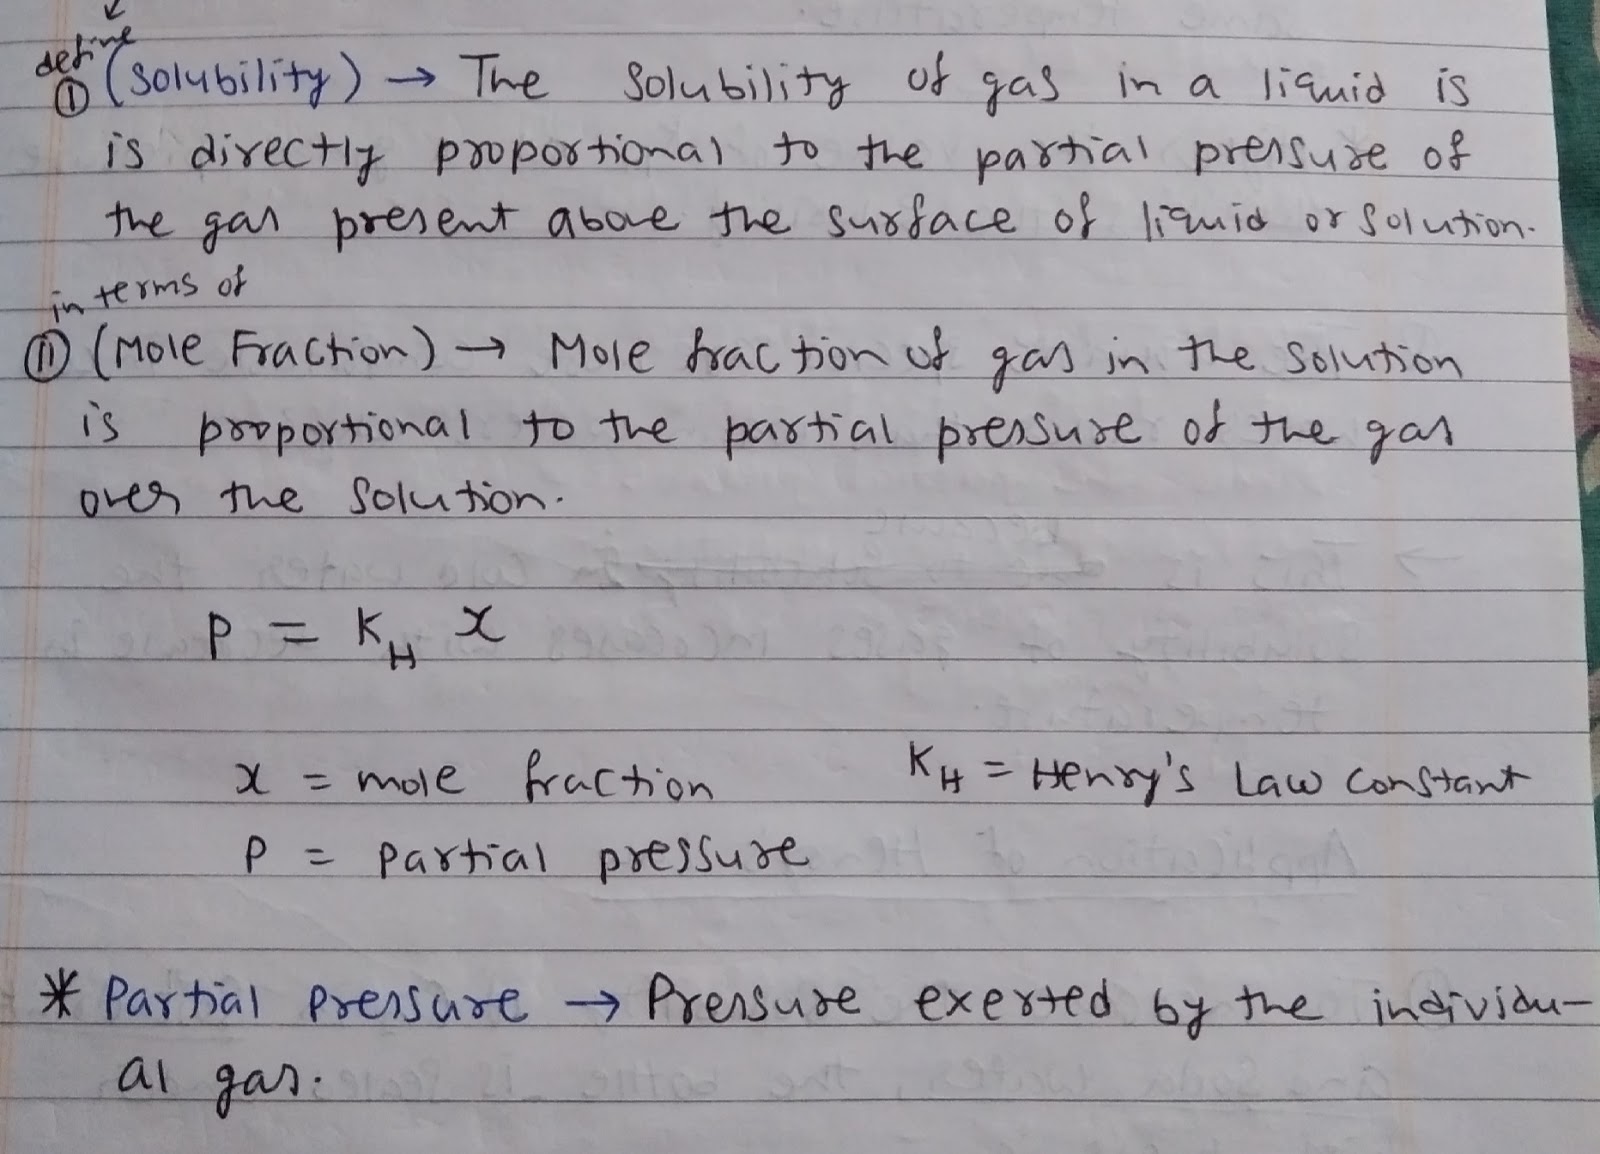 define
① (Solubility) → The Solubility of gas in a liquid is
is directly proportional to the partial pressure of
the gas present above the surface of liquid or solution.
in terms of
⑪ (Mole Fraction) → Mole fraction of gas in the solution
is proportional to the partial pressure of the gas
over the solution.
P = K_H x
x = mole fraction K_H = Henry's Law constant
P = partial pressure
* Partial Pressure → Pressure exerted by the individu-
al gas.